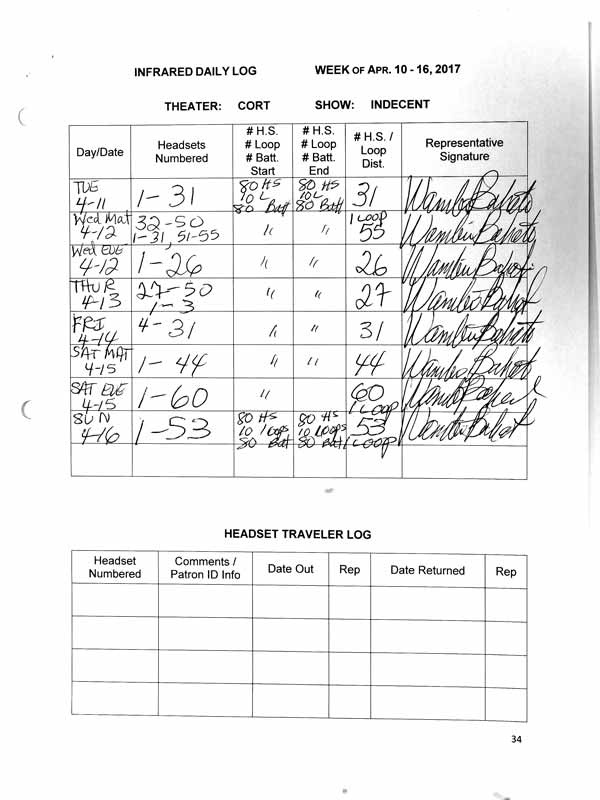 INFRARED DAILY LOG WEEK OF APR. 10 - 16, 2017
THEATER: CORT SHOW: INDECENT
Day/Date
Headsets
Numbered
# H.S.
# Loop
# Batt.
Start
# H.S.
# Loop
# Batt.
End
# H.S. /
Loop
Dist.
Representative
Signature
TUE
4-11
1-31
80 HS
10 L
80 Batt
80 HS
10 L
80 Batt
31
Wed Mat
4-12
32-50
1-31, 51-55
"
"
1 LOOP
55
Wed EVE
4-12
1-26
"
"
26
THUR
4-13
27-50
1-3
"
"
27
FRI
4-14
4-31
"
"
31
SAT MAT
4-15
1-44
"
"
44
SAT EVE
4-15
1-60
"
60
1 LOOP
SUN
4-16
1-53
80 HS
10 loops
80 Batt
80 HS
10 LOOPS
80 Batt
53
1 LOOP
HEADSET TRAVELER LOG
Headset
Numbered
Comments /
Patron ID Info
Date Out
Rep
Date Returned
Rep
34